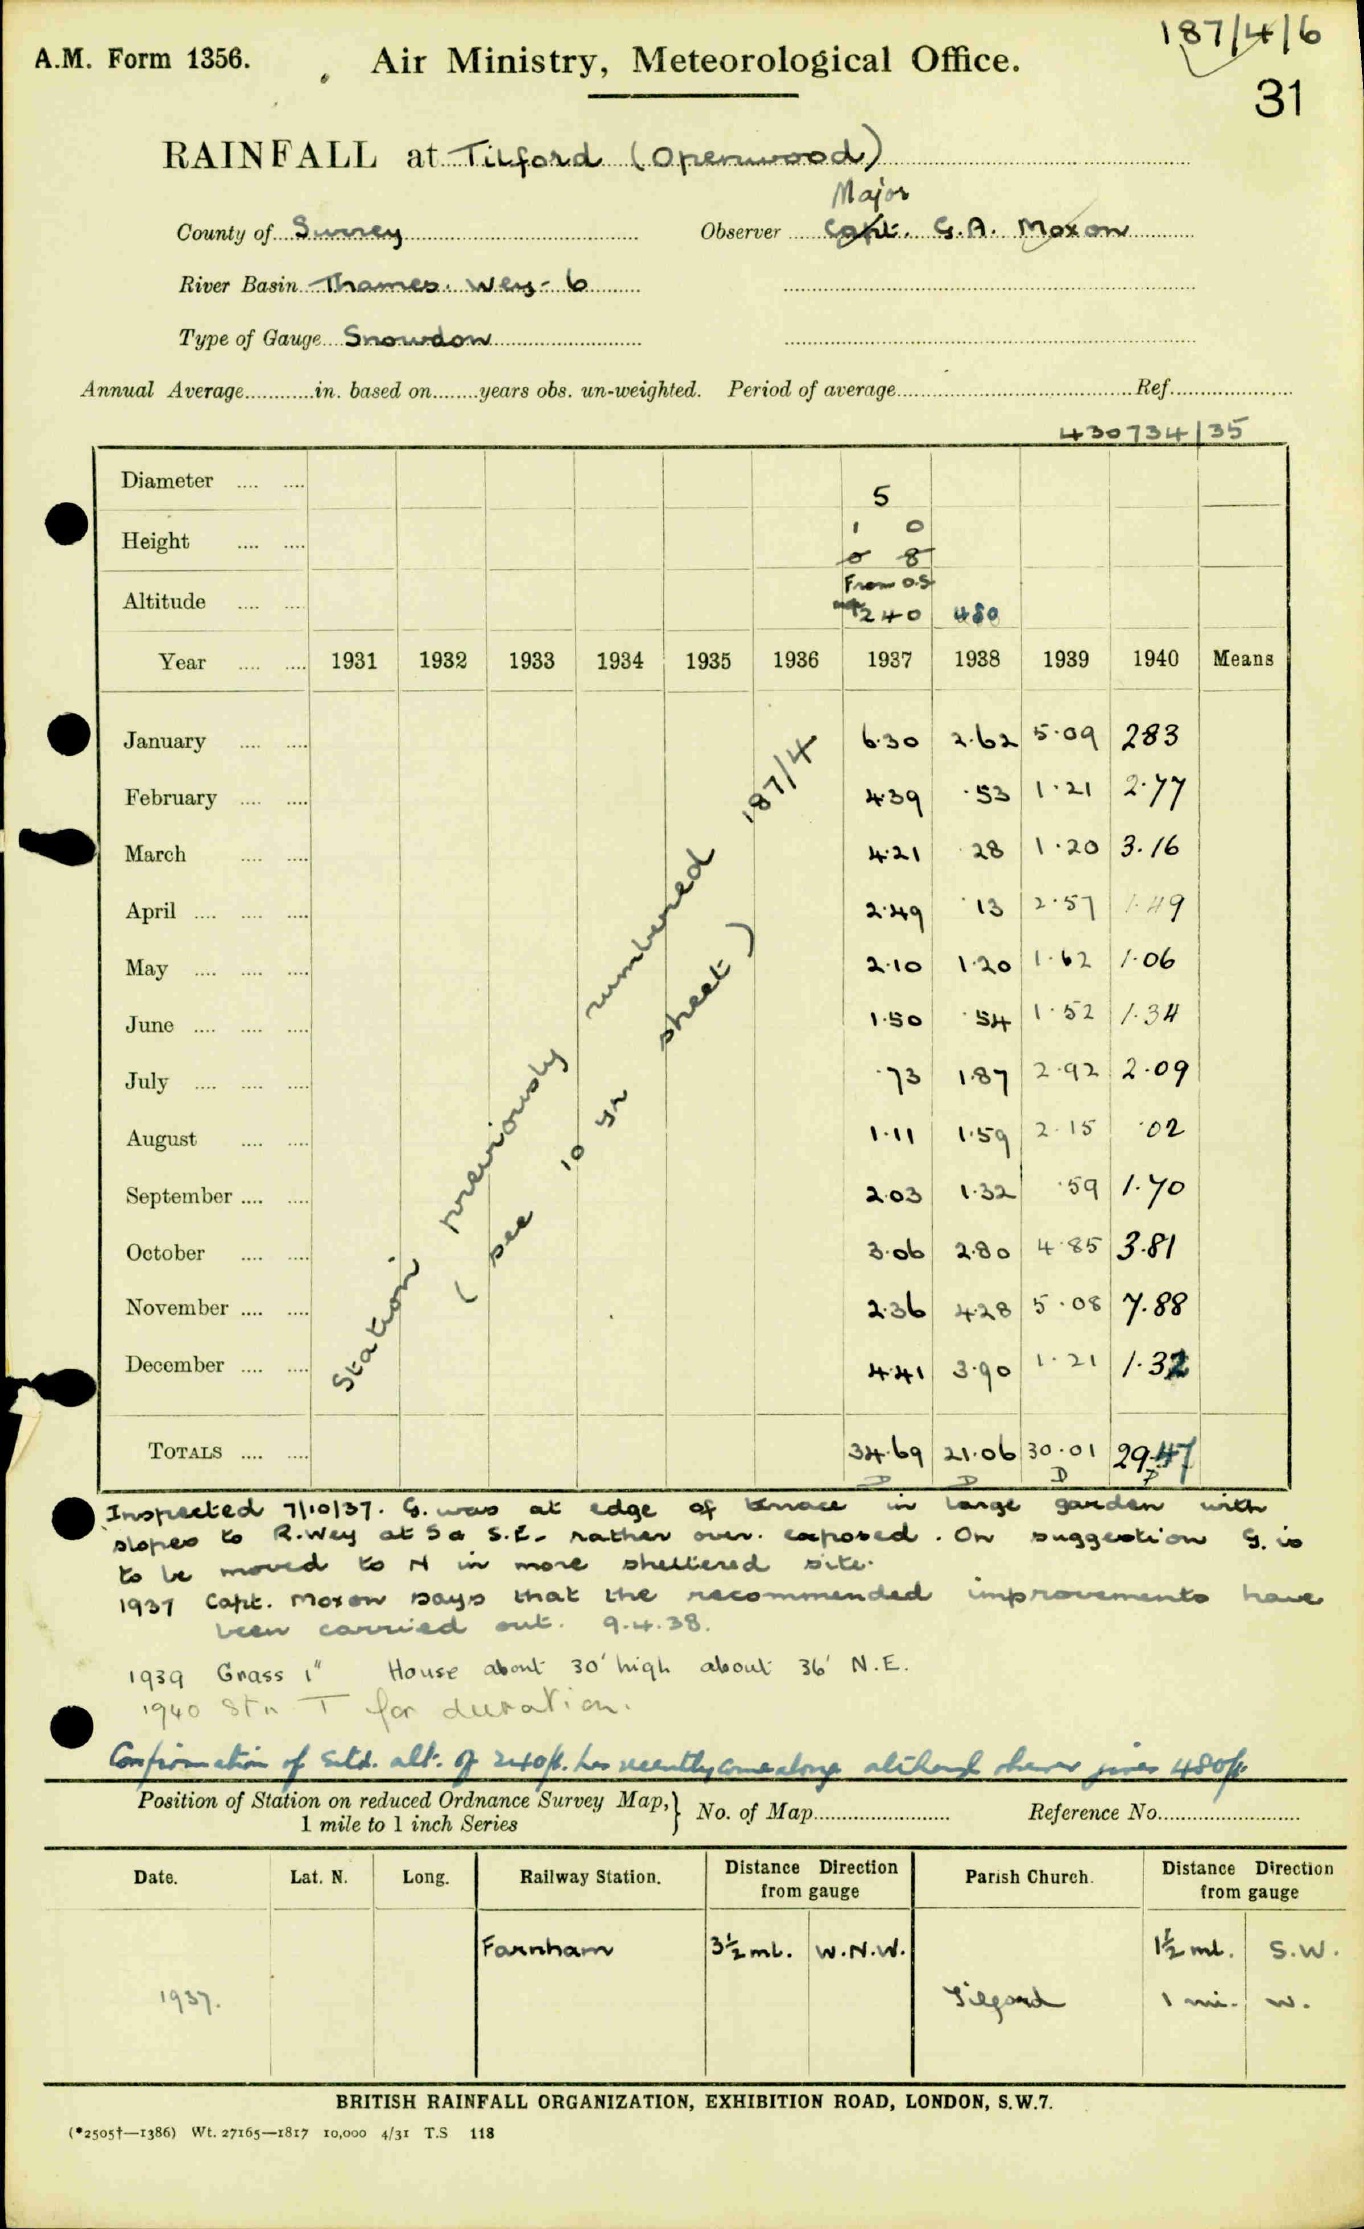 187/4/6
A.M. Form 1356. Air Ministry, Meteorological Office.
31
RAINFALL at Tilford (Openwood)
Major
County of Surrey Observer Capt. G.A. Moxon
River Basin Thames. Wey - 6
Type of Gauge Snowdon
Annual Average in. based on years obs. un-weighted. Period of average Ref.
430734/35
Diameter 5
Height 1 0
0 8
From O.S
Altitude 240 480
Year 1931 1932 1933 1934 1935 1936 1937 1938 1939 1940 Means
January 6.30 2.62 5.09 283
February 4.39 .53 1.21 2.77
March 4.21 .28 1.20 3.16
April 2.49 .13 2.57 1.49
May 2.10 1.20 1.62 1.06
June 1.50 .54 1.52 1.34
July .73 1.87 2.92 2.09
August 1.11 1.59 2.15 .02
September 2.03 1.32 .59 1.70
October 3.06 2.80 4.85 3.81
November 2.36 4.28 5.08 7.88
December 4.41 3.90 1.21 1.32
TOTALS 34.69 21.06 30.01 29.47
D D D D
Station previously numbered 187/4
(see 10 yr sheet)
Inspected 7/10/37. G. was at edge of terrace in large garden with
slopes to R. Wey at S & S.E. - rather over. exposed. On suggestion G. is
to be moved to N in more sheltered site.
1937 Capt. Moxon says that the recommended improvements have
been carried out. 9.4.38.
1939 Grass 1" House about 30' high about 36' N.E.
1940 Stn T for duration.
Confirmation of alt. of 240ft. has recently come along although observer gives 480ft.
Position of Station on reduced Ordnance Survey Map, } No. of Map Reference No.
1 mile to 1 inch Series
Date. Lat. N. Long. Railway Station. Distance Direction from gauge Parish Church. Distance Direction from gauge
Farnham 3½ ml. W.N.W. 1½ ml. S.W.
1937. Tilford 1 mi. W.
BRITISH RAINFALL ORGANIZATION, EXHIBITION ROAD, LONDON, S.W.7.
(*2505†—1386) Wt. 27165—1817 10,000 4/31 T.S 118